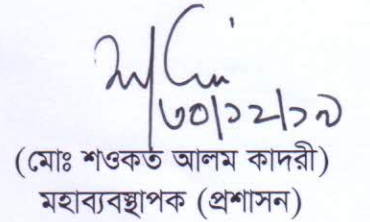 ৩০/১২/১৯
(মোঃ শওকত আলম কাদরী)
মহাব্যবস্থাপক (প্রশাসন)